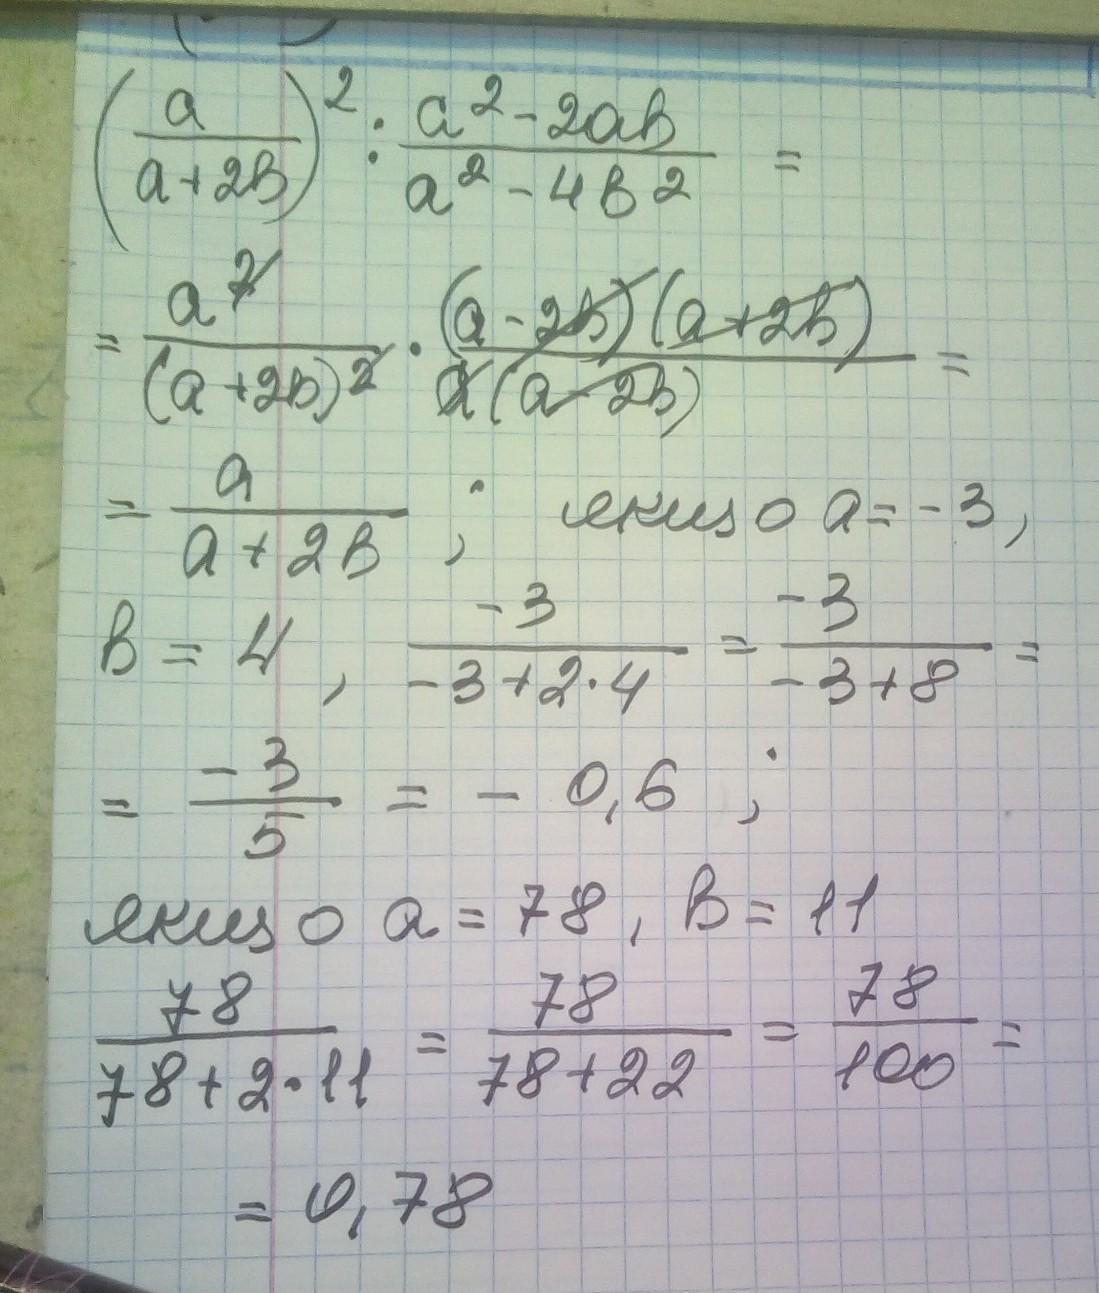 (a/(a+2b))² : (a²-2ab)/(a²-4b²) =
= a²/(a+2b)² · (a-2b)(a+2b)/a(a-2b) =
= a/(a+2b) ; якщо a=-3,
b=4, -3/(-3+2·4) = -3/(-3+8) =
= -3/5 = - 0,6 ;
якщо a=78, b=11
78/(78+2·11) = 78/(78+22) = 78/100 =
= 0,78